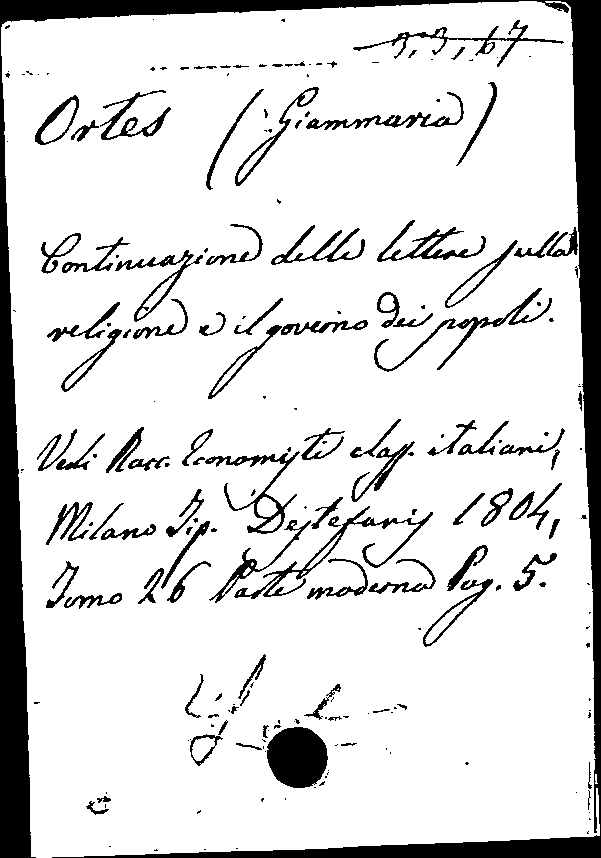 3,3,67
Ortes (Giammaria)
Continuazione delle lettere sulla
religione e il governo dei popoli.
Vedi Racc. Economisti class. italiani,
Milano Tip. Destefanis 1804,
Tomo 26 Parte moderna Pag. 5.